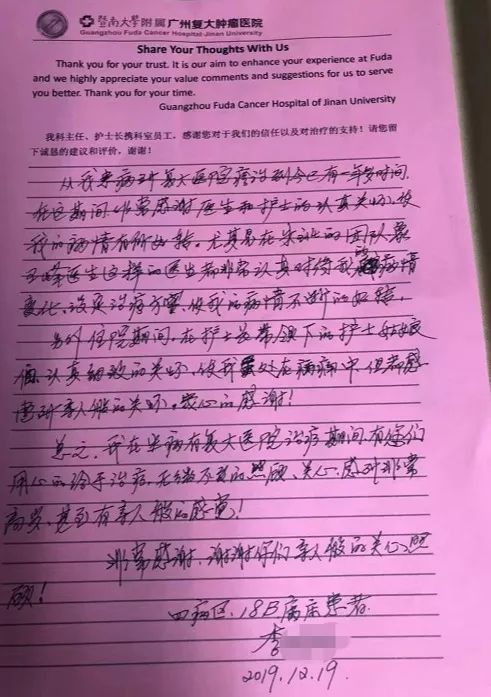 暨南大學附属广州复大肿瘤医院
Guangzhou Fuda Cancer Hospital Jinan University
Share Your Thoughts With Us
Thank you for your trust. It is our aim to enhance your experience at Fuda
and we highly appreciate your value comments and suggestions for us to serve
you better. Thank you for your time.
Guangzhou Fuda Cancer Hospital of Jinan University
我科主任、护士长携科室员工，感谢您对于我们的信任以及对治疗的支持！请您留
下诚恳的建议和评价，谢谢！
从我患病到复大医院治疗到今已有一年多时间，
在这期间，非常感谢医生和护士的认真关怀，使
我的病情有所好转。尤其是在 的团队
医生这样的医生都非常认真对待我的病情
变化，改变治疗方案，使我的病情不断的好转，
另外住院期间，在护士长带领下的护士姑娘
们认真细致的关怀，使我处在病痛中，但都感
受到亲人般的关怀。衷心的感谢！
总之，我在患病在复大医院治疗期间有你们
用心的给予治疗，无微不至的照顾、关心，感到非常
高兴，甚至有亲人般的感觉！
非常感谢，谢谢你们亲人般的关心照
顾！
四病区，18B病床患者
李
2019.12.19